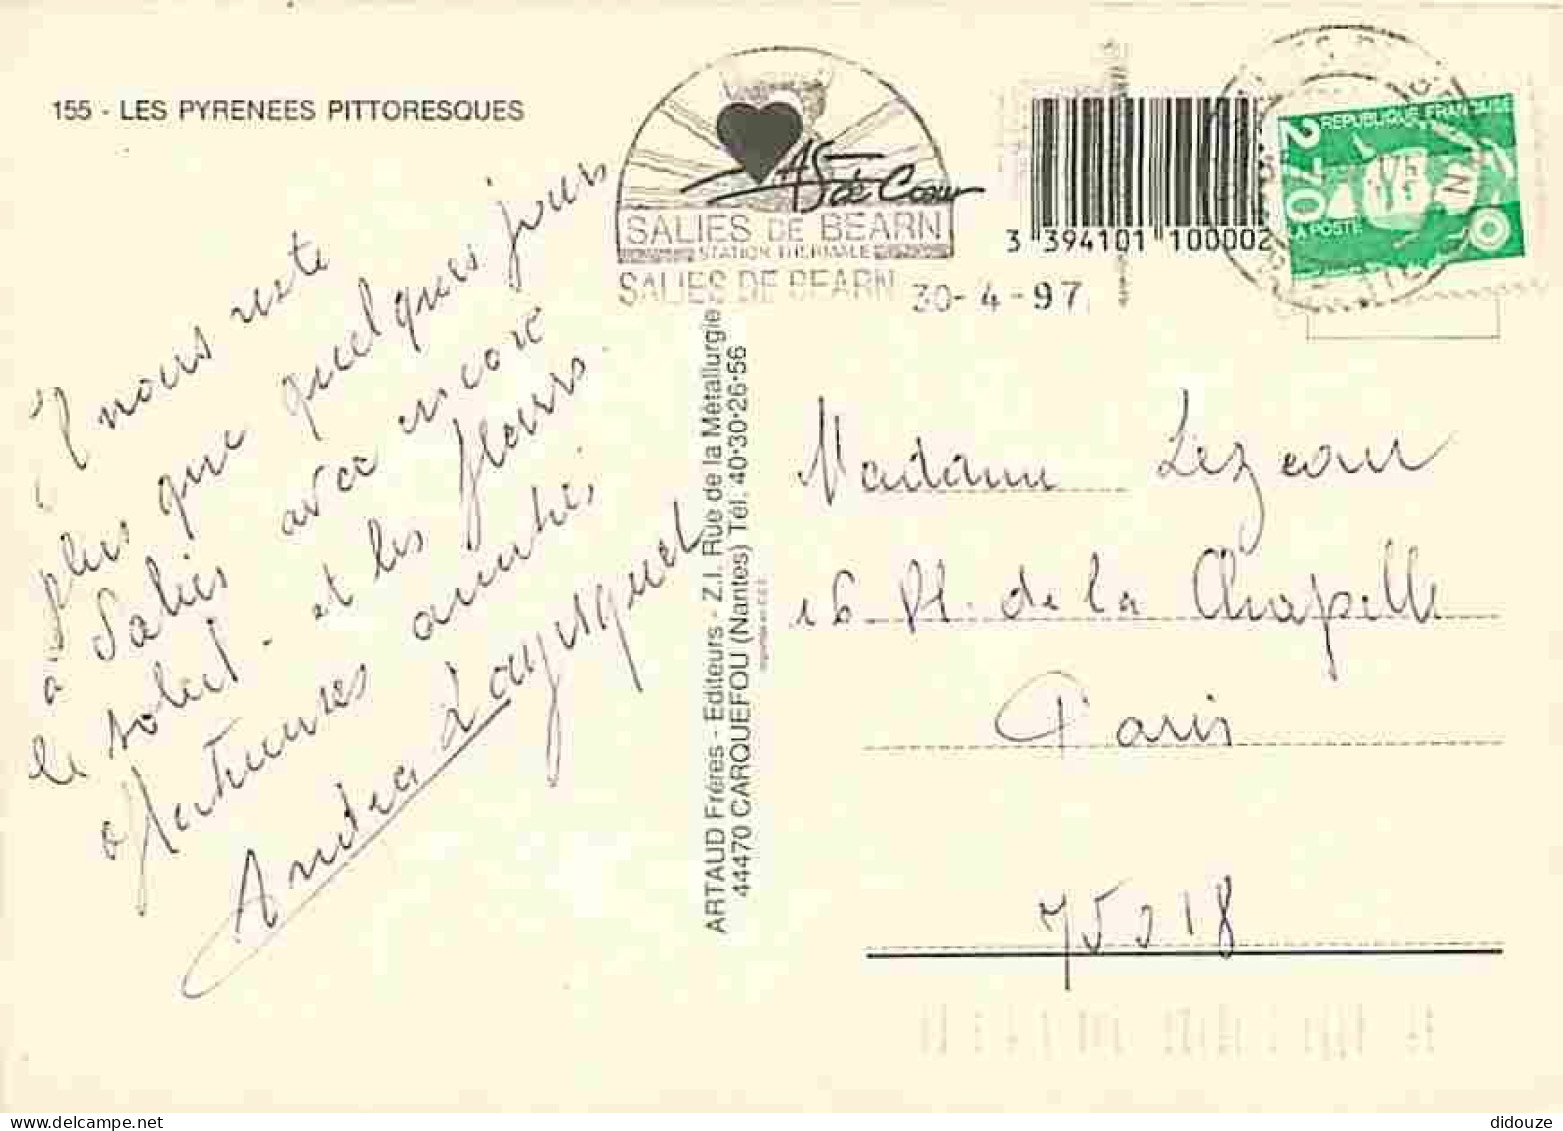 155 - LES PYRENEES PITTORESQUES
AS de Coeur
SALIES DE BEARN
STATION THERMALE
SALIES DE BEARN 30-4-97
3 394101 100002
REPUBLIQUE FRANÇAISE
2,70
LA POSTE
Il nous reste
plus que quelques jours
à Salies avec encore
le soleil - et les fleurs.
affectueuses amitiés
Andréa
ARTAUD Frères - Editeurs - Z.I. Rue de la Métallurgie
44470 CARQUEFOU (Nantes) Tél. 40·30·26·56
Madame Lezeau
16 Pl. de la Chapelle
Paris
75018
delcampe.net
didouze